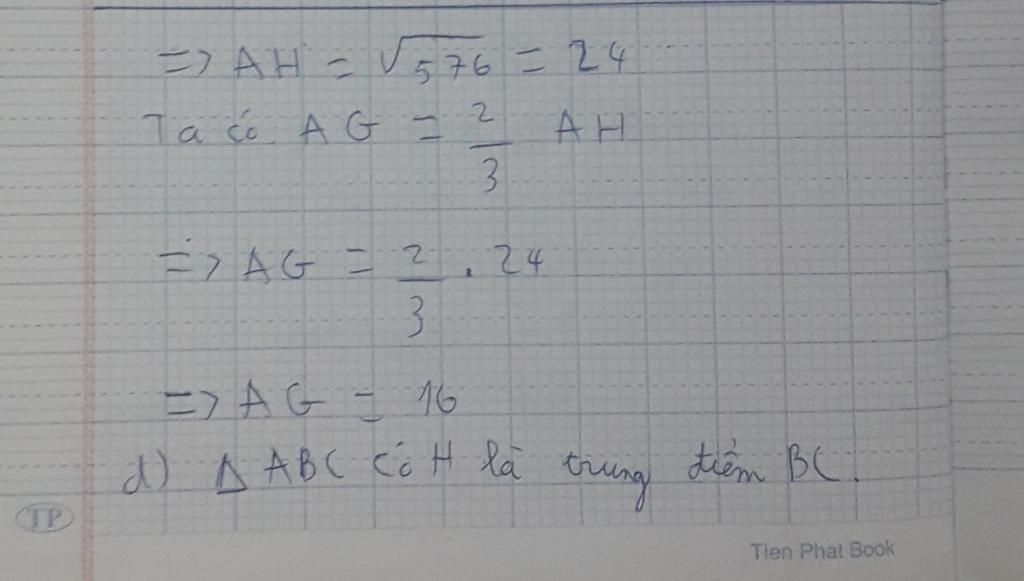 => AH = √576 = 24
Ta có AG = 2/3 AH
=> AG = 2/3 . 24
=> AG = 16
d) Δ ABC có H là trung điểm BC.
TP
Tien Phat Book